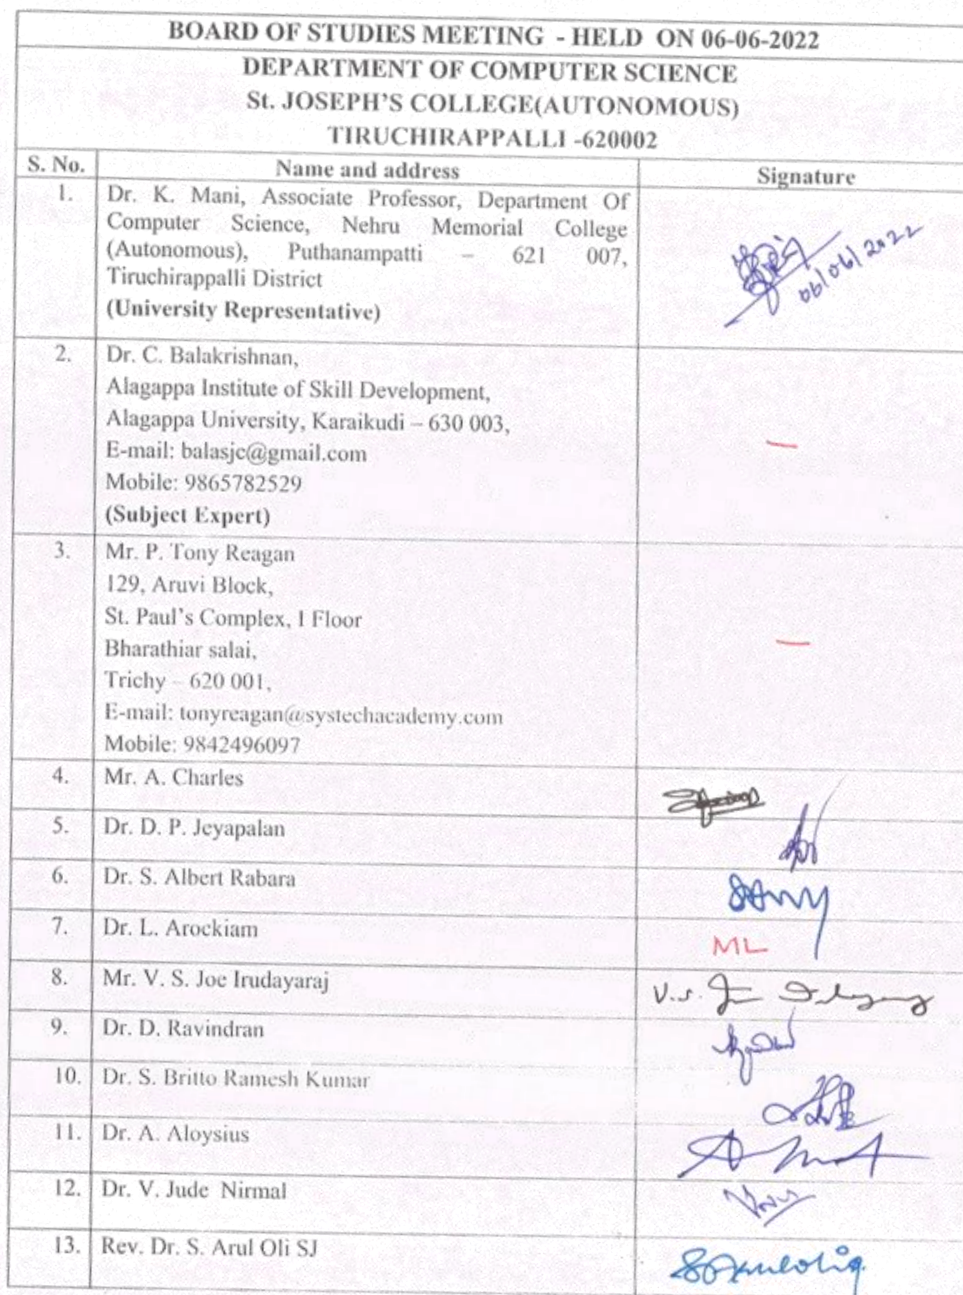 BOARD OF STUDIES MEETING - HELD ON 06-06-2022
DEPARTMENT OF COMPUTER SCIENCE
St. JOSEPH'S COLLEGE(AUTONOMOUS)
TIRUCHIRAPPALLI -620002
S. No. Name and address Signature
1. Dr. K. Mani, Associate Professor, Department Of
Computer Science, Nehru Memorial College
(Autonomous), Puthanampatti – 621 007,
Tiruchirappalli District
(University Representative)
06/06/2022
2. Dr. C. Balakrishnan,
Alagappa Institute of Skill Development,
Alagappa University, Karaikudi – 630 003,
E-mail: balasjc@gmail.com
Mobile: 9865782529
(Subject Expert)
3. Mr. P. Tony Reagan
129, Aruvi Block,
St. Paul's Complex, I Floor
Bharathiar salai,
Trichy – 620 001,
E-mail: tonyreagan@systechacademy.com
Mobile: 9842496097
4. Mr. A. Charles
5. Dr. D. P. Jeyapalan
6. Dr. S. Albert Rabara
7. Dr. L. Arockiam ML
8. Mr. V. S. Joe Irudayaraj V.S. Joe
9. Dr. D. Ravindran
10. Dr. S. Britto Ramesh Kumar
11. Dr. A. Aloysius
12. Dr. V. Jude Nirmal
13. Rev. Dr. S. Arul Oli SJ